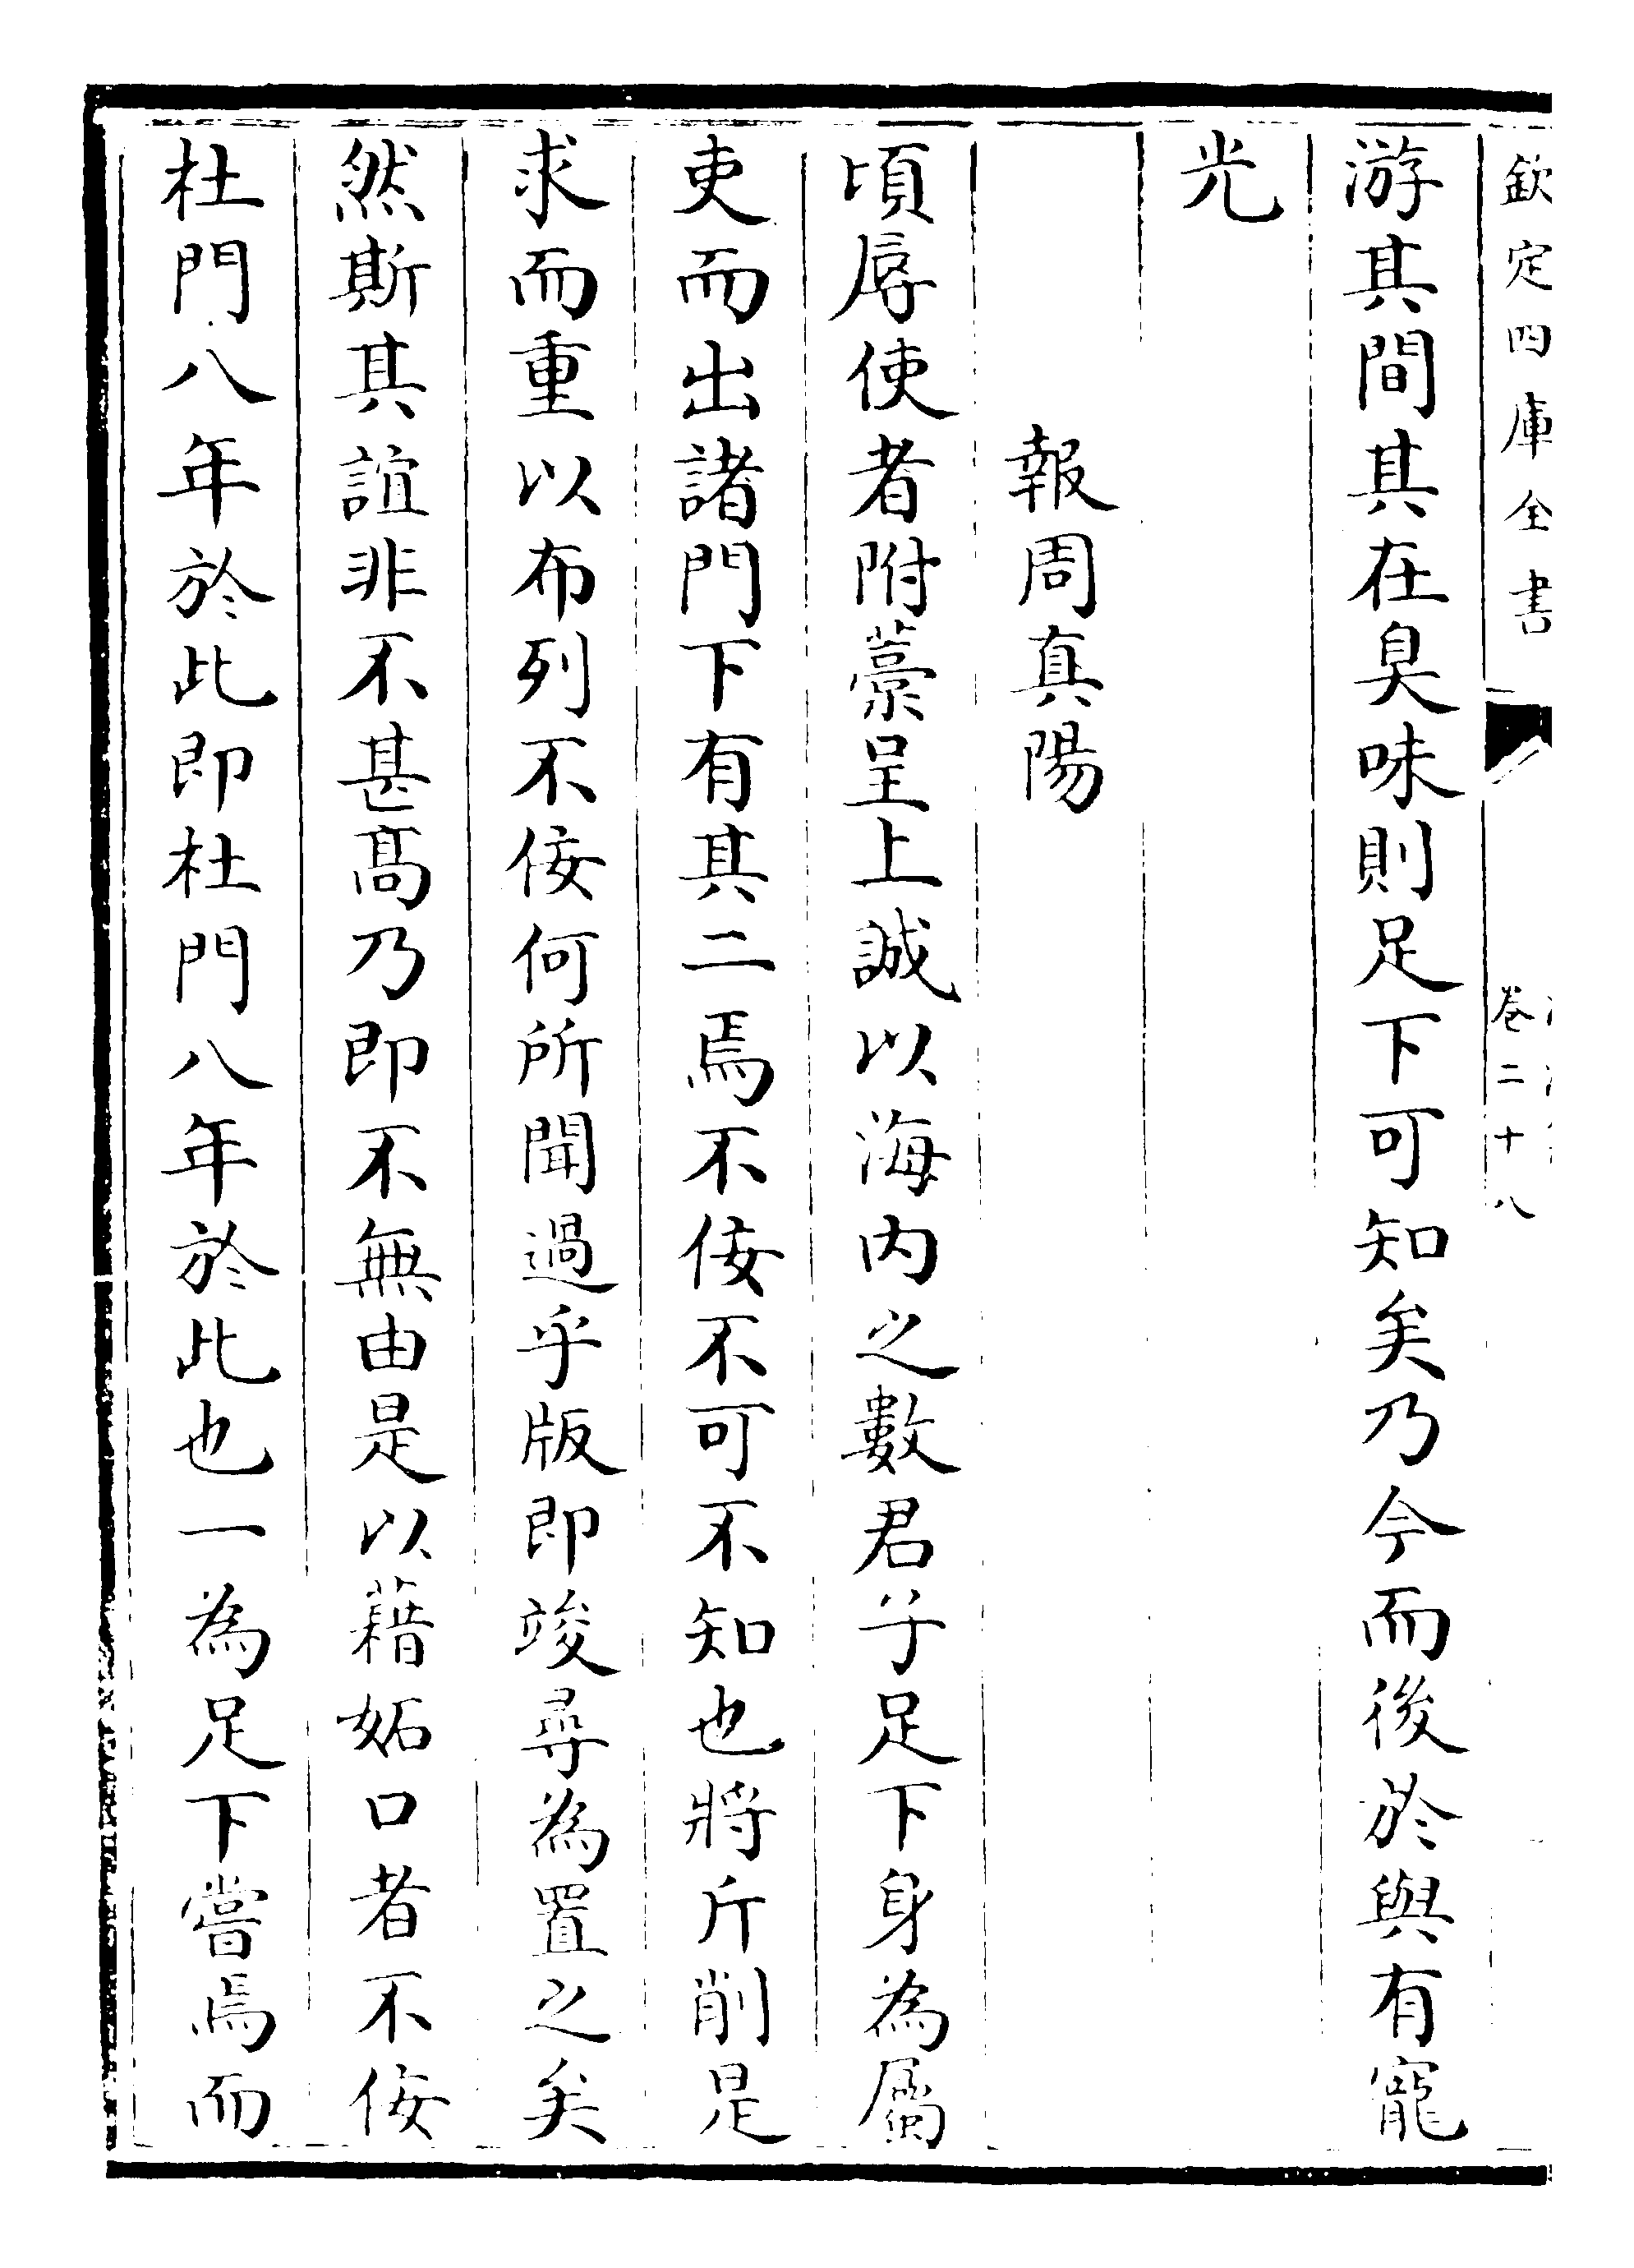 欽定四庫全書
卷二十八
游其間其在臭味則足下可知矣乃今而後於與有寵
光
報周真陽
頃辱使者附藁呈上誠以海内之數君子足下身為屬
吏而出諸門下有其二焉不佞不可不知也將斤削是
求而重以布列不佞何所聞過乎版即竣尋為置之矣
然斯其誼非不甚髙乃即不無由是以藉妬口者不佞
杜門八年於此即杜門八年於此也一為足下嘗焉而